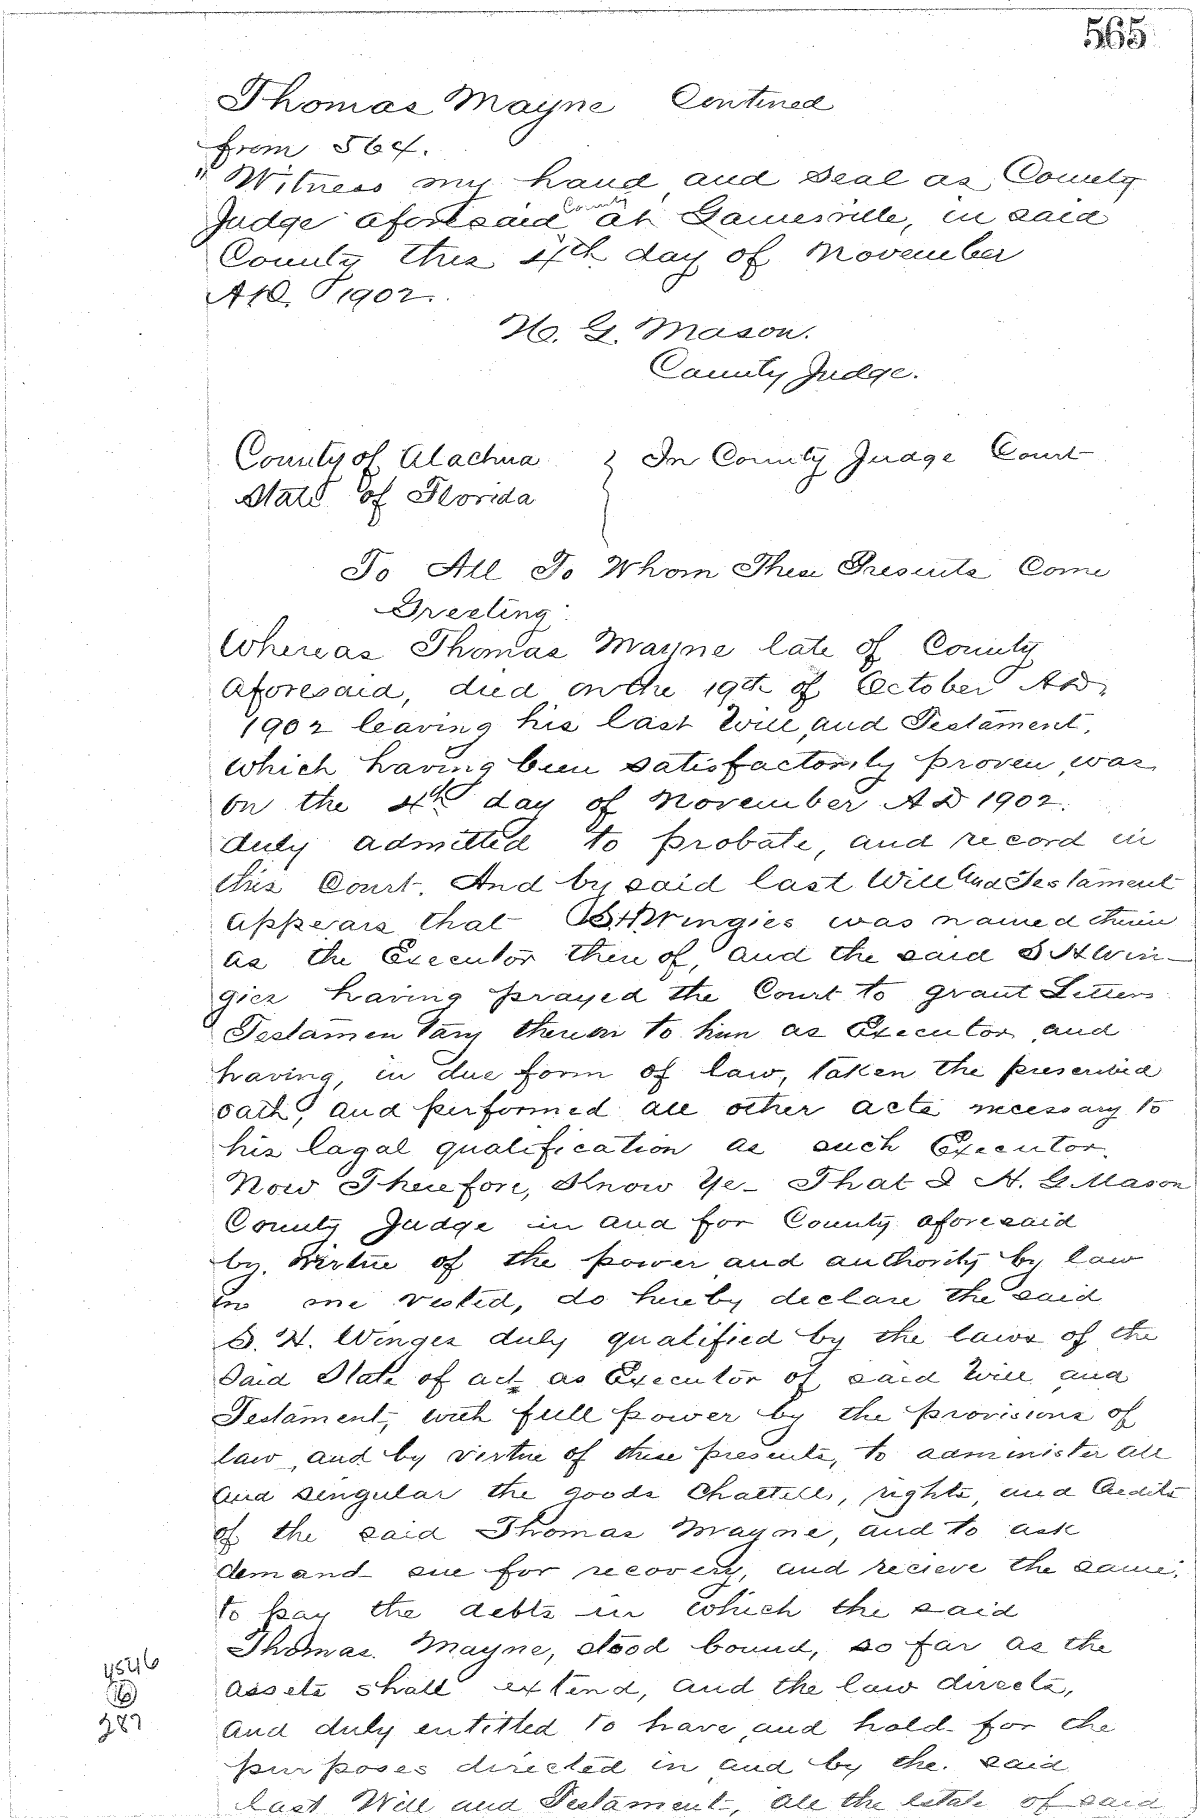 565
Thomas Mayne Contined
from 564.
"Witness my hand and seal as County
Judge aforesaid County at Gainesville, in said
County this 4th day of November
A.D. 1902.
H. G. Mason.
County Judge.
County of Alachua } In County Judge Court
State of Florida
To All To Whom These Presents Come
Greeting:
Whereas Thomas Mayne late of County
aforesaid, died on the 19th of October A.D.
1902 leaving his last Will and Testament,
which having been satisfactorily proven, was
on the 4th day of November A D 1902.
duly admitted to probate, and record in
this Court. And by said last Will and Testament
appears that S H Wingies was named therein
as the Executor there of, and the said S H Win-
gies having prayed the Court to grant Letters
Testamentary thereon to him as Executor and
having, in due form of law, taken the prescribed
oath, and performed all other acts necessary to
his lagal qualification as such Executor.
Now Therefore, Know Ye- That I H. G Mason
County Judge in and for County aforesaid
by. Virtue of the power and authority by law
in me vested, do hereby declare the said
S. H. Winges duly qualified by the laws of the
Said State of act as Executor of said Will and
Testament, with full power by the provisions of
law, and by virtue of these presents, to administer all
and singular the goods Chattells, rights, and Credits
of the said Thomas Mayne, and to ask
demand sue for recovery, and recieve the same;
to pay the debts in which the said
Thomas. Mayne, stood bound, so far as the
assets shall extend, and the law directs,
and duly entitled to have and hold for the
purposes directed in and by the. said
last Will and Testament, all the estate of said
4546
16
287